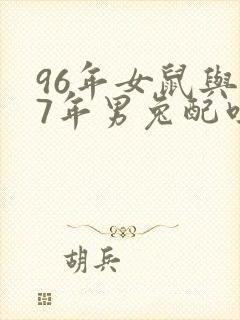 96年女鼠與
7年男兔配
胡兵